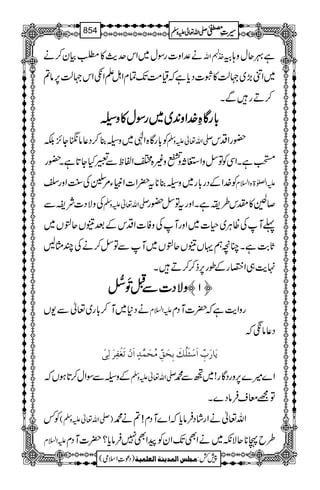 سیرتِ مصطفیٰ صلی اللہ تعالیٰ علیہ وسلم 854
بہر حال وہابیہ خذلہم اللہ نے عداوت رسول میں اس حدیث کا مطلب بیان کرنے
میں اتنی بڑی جہالت کا ثبوت دیا ہے کہ قیامت تک تمام اہل علم انکی اس جہالت پر ماتم
کرتے رہیں گے۔
بارگاہِ خداوندی میں رسول کا وسیلہ
حضور اقدس صلی اللہ تعالیٰ علیہ وسلم کو بارگاہ الٰہی میں وسیلہ بنا کر دعا مانگنا جائز بلکہ
مستحب ہے۔ اسی کو توسل و استغاثہ و تشفع وغیرہ مختلف الفاظ سے تعبیر کیا جاتا ہے۔ حضور
علیہ الصلاۃ والسلام کو خدا کے دربار میں وسیلہ بنانا یہ حضرات انبیاء مرسلین کی سنت اور سلف
صالحین کا مقدس طریقہ ہے۔ اور یہ توسل حضور صلی اللہ تعالیٰ علیہ وسلم کی ولادت شریفہ سے
پہلے آپ کی ظاہری حیات میں اور آپ کی وفات اقدس کے بعد تینوں حالتوں میں
ثابت ہے۔ چنانچہ ہم یہاں تینوں حالتوں میں آپ سے توسل کرنے کی چند مثالیں
نہایت ہی اختصار کے طور پر ذکر کرتے ہیں۔
﴿۱﴾ ولادت سے قبل توسُّل
روایت ہے کہ حضرت آدم علیہ السلام نے دنیا میں آ کر باری تعالیٰ سے یوں
دعا مانگی کہ
یَارَبِّ اَسْئَلُکَ بِحَقِّ مُحَمَّدٍ اَنْ تَغْفِرَ لِیْ
اے میرے پروردگار! میں تجھ سے محمد صلی اللہ تعالیٰ علیہ وسلم کے وسیلہ سے سوال کرتا ہوں کہ
تو مجھے معاف فرمادے۔
اللہ تعالیٰ نے ارشاد فرمایا کہ اے آدم! تم نے محمد (صلی اللہ تعالیٰ علیہ وسلم) کو کس
طرح پہچانا حالانکہ میں نے ابھی تک ان کو پیدا بھی نہیں فرمایا؟ حضرت آدم علیہ السلام
پیش کش: مجلس المدینة العلمیة (دعوت اسلامی)